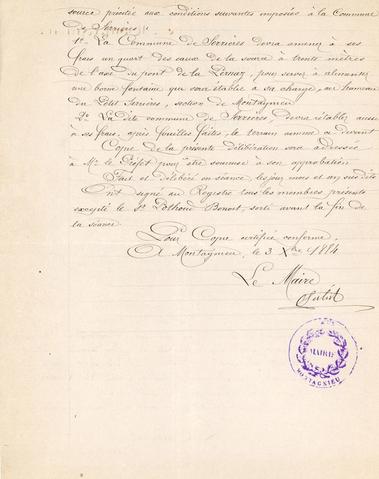 source précitée aux conditions suivantes imposées à la Commune
de Serrières
1º - La Commune de Serrières devra amener à ses
frais un quart des eaux de la source à trente mètres
de l'axe du pont de la Pernaz, pour servir à alimenter
une borne fontaine qui sera établie à sa charge, au hameau
du Petit Serrières, section de Montagnieu
2º La dite commune de Serrières, devra rétablir aussi
à ses frais, après fouilles faites, le terrain comme ci devant
Copie de la présente délibération sera adressée
à Mr le Préfet pour être soumise à son approbation
Fait et délibéré en séance, les jour, mois et an sus dits
Ont signé au Registre tous les membres présents
excepté le Sr Benoit, sorti avant la fin de
la séance.
Pour Copie certifiée conforme
A Montagnieu, le 3 Xbre 1884
Le Maire
MAIRIE
MONTAGNIEU